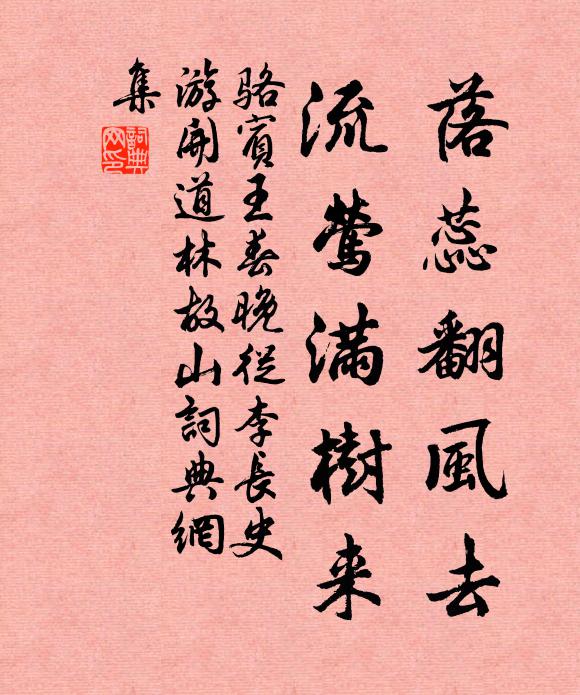 落蕊翻風去
流鶯滿樹来
駱賓王春晚從李長史
游開道林故山詞典網
集
詞典
网印